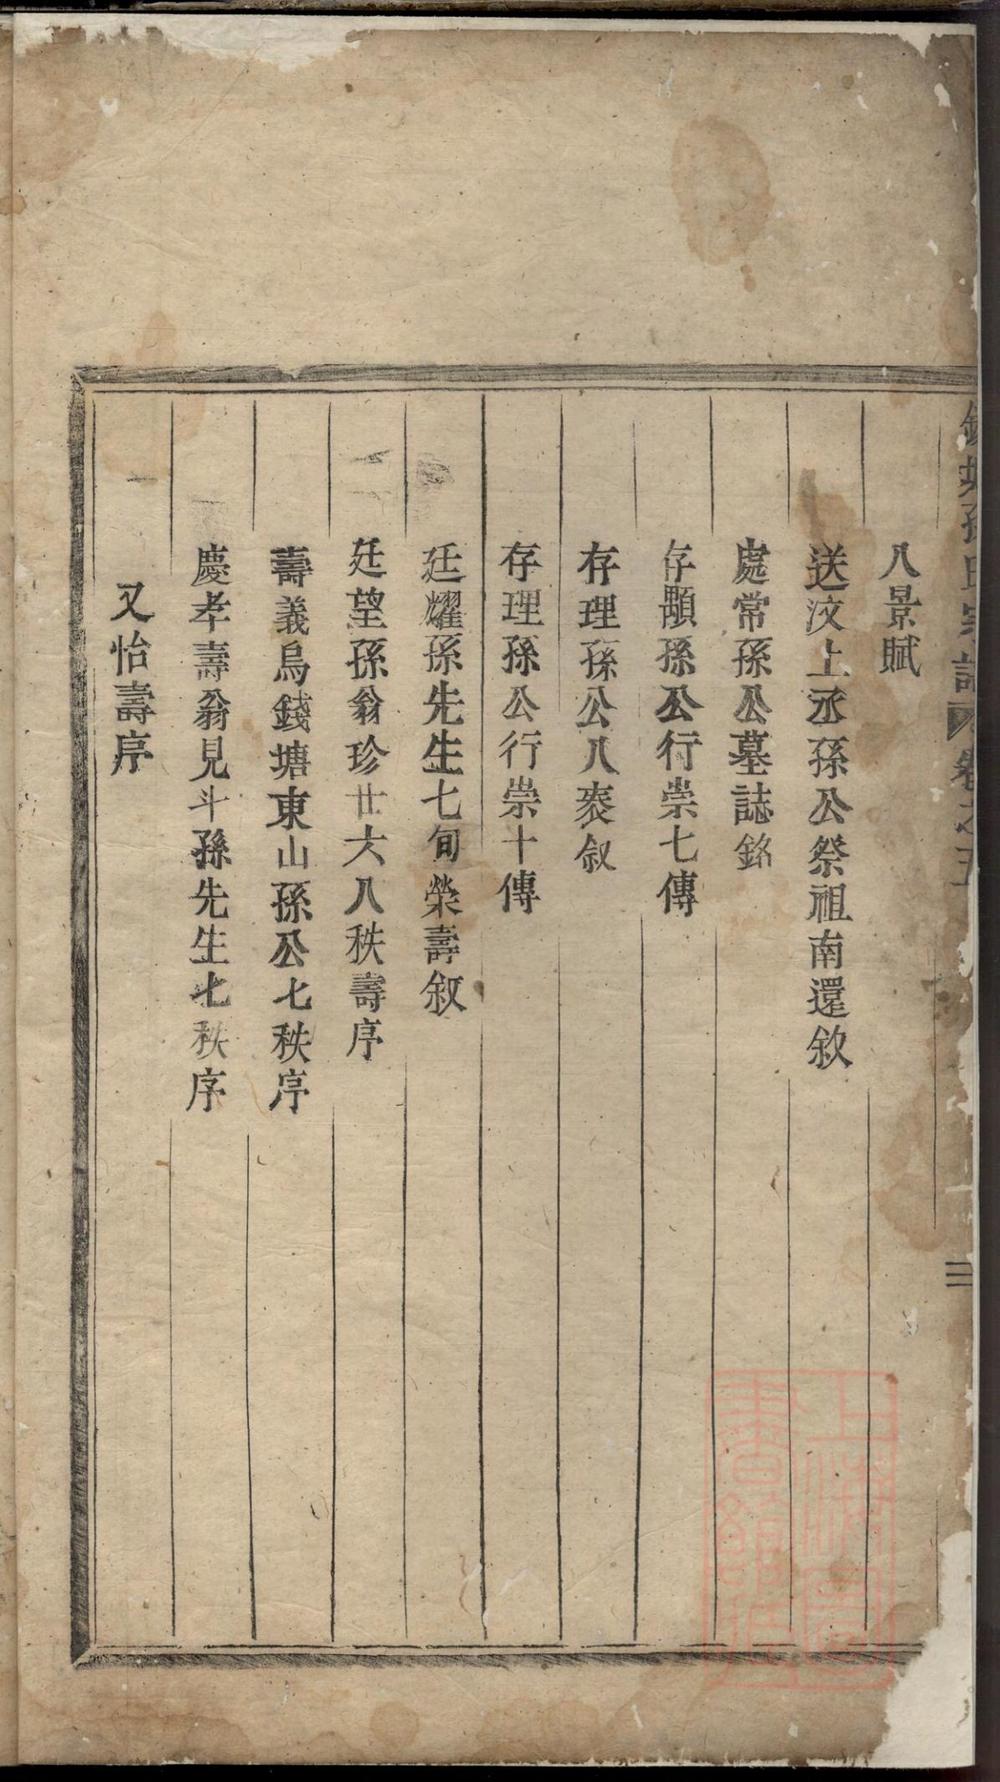 孫氏宗譜 卷之五 三
八景賦
送汶上丞孫公祭祖南還敘
處常孫公墓誌銘
存顒孫公行崇七傳
存理孫公八袠敘
存理孫公行崇十傳
廷耀孫先生七旬榮壽敘
廷望孫翁珍廿六八秩壽序
壽義烏錢塘東山孫公七秩序
慶孝壽翁見斗孫先生七秩序
又怡壽序
上海圖書館藏